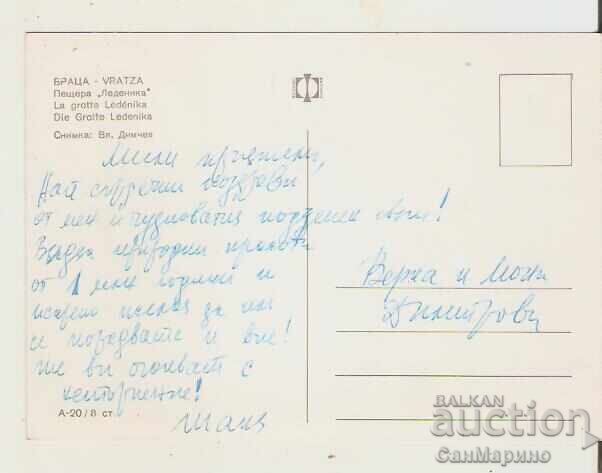 БРАЦА - VRATZA
Пещера „Леденика"
La grotte Ledénika
Die Grotte Ledenika
Снимка: Вл. Димчев
Мили приятели,
Най сърдечни поздрави
от мен и чудноватия подземен свят!
природни
от 1 мил. години и
искрено да им
се порадвате и вие!
Ще ви очакват с
нетърпение!
Верка и
Димитрови
А-20/8 ст.
BALKAN
auction
СанМарино